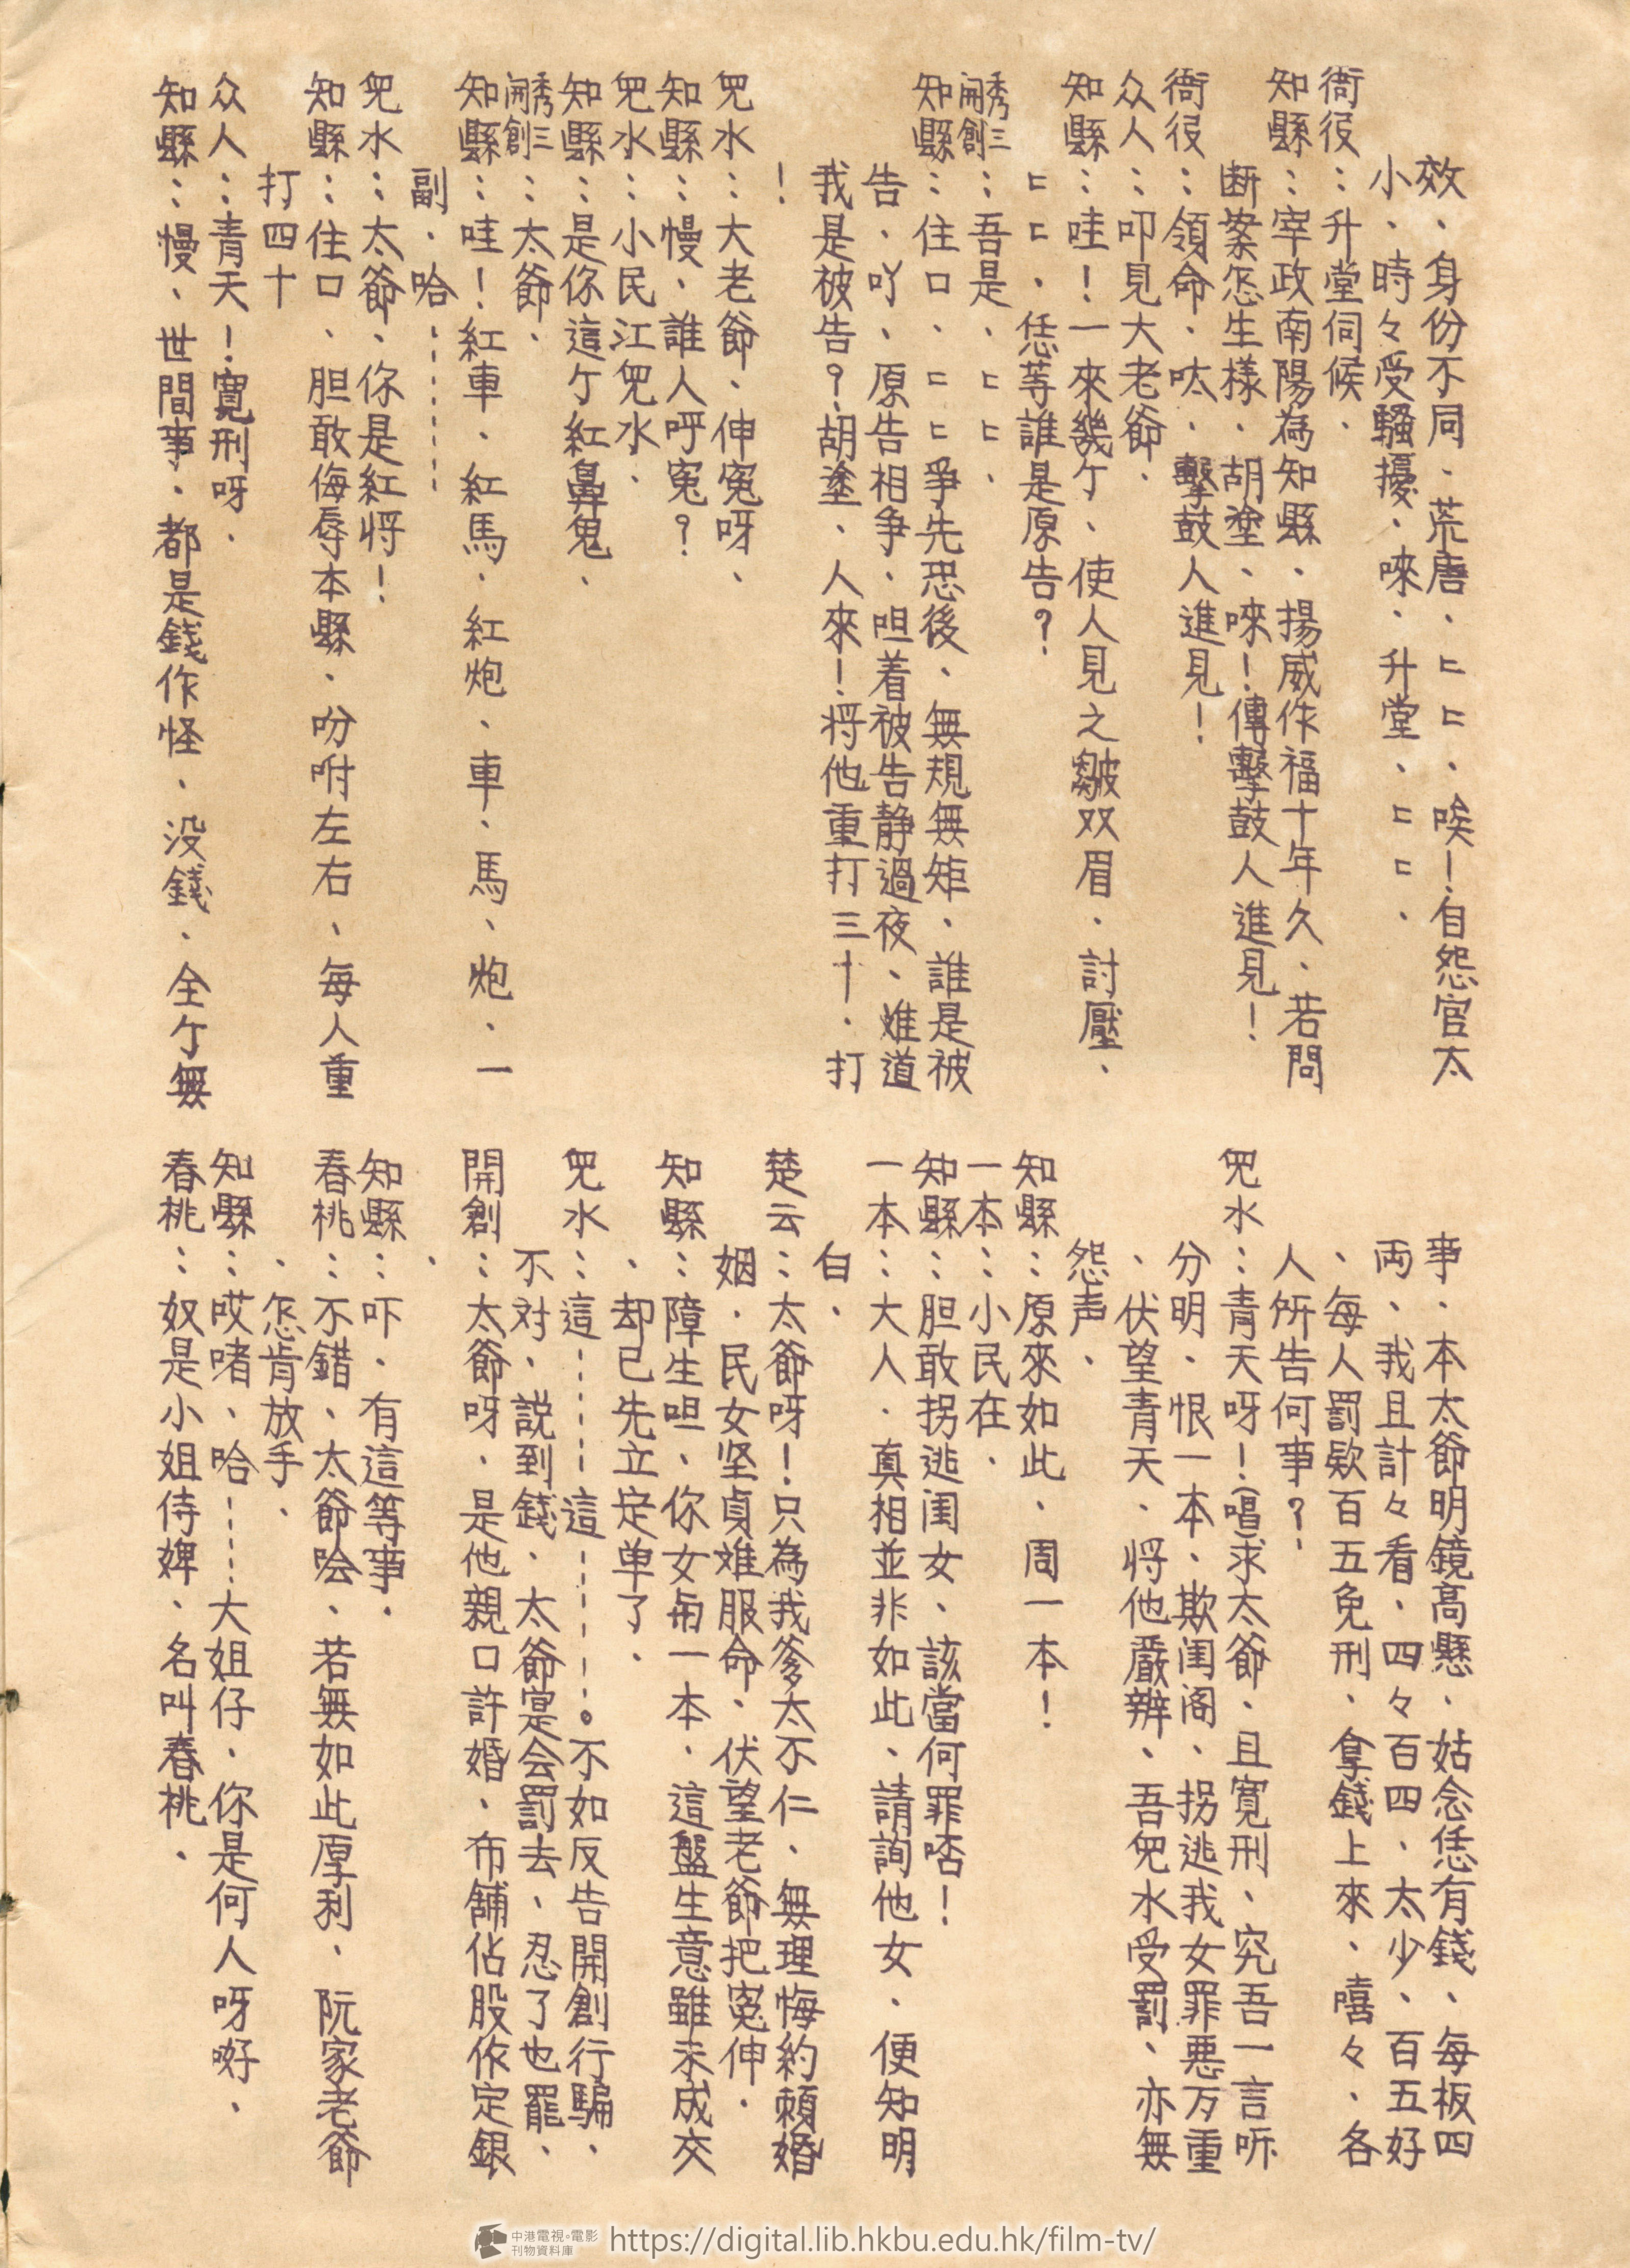 效、身份不同、荒唐、ㄷㄷ、唉！自怨官太
小、時々受騷擾、唻、升堂、ㄷㄷ、
衙役：升堂伺候、
知縣：宰政南陽為知縣、揚威作福十年久、若問
断案怎生樣、胡塗、唻！傳擊鼓人進見！
衙役：領命、呔、擊鼓人進見！
众人：叩見大老爺、
知縣：哇！一來幾亇、使人見之皺双眉、討壓、
ㄷㄷ、恁等誰是原告？
秀三
開創：吾是、ㄷㄷ、
知縣：住口、ㄷㄷ爭先恐後、無規無矩、誰是被
告、吖、原告相争、呾着被告静過夜、难道
我是被告？胡塗、人來！将他重打三十、打
！
兕水：大老爺、伸寃呀、
知縣：慢、誰人呼寃？
兕水：小民江兕水、
知縣：是你這亇紅鼻鬼、
秀三
開創：太爺、
知縣：哇！紅車、紅馬、紅炮、車、馬、炮、一
副、哈…………
兕水：太爺、你是紅将！
知縣：住口、胆敢侮辱本縣、吩咐左右、每人重
打四十
众人：青天！寬刑呀、
知縣：慢、世間事、都是錢作怪、没錢、全亇無
事、本太爺明鏡高懸、姑念恁有錢、每板四
両、我且計々看、四々百四、太少、百五好
、每人罰欵百五免刑、拿錢上來、嘻々、各
人所告何事？
兕水：青天呀！（唱）求太爺、且寬刑、究吾一言訴
分明、恨一本、欺闺阁、拐逃我女罪悪万重
、伏望青天、将他嚴辦、吾兕水受罰、亦無
怨声、
知縣：原來如此、周一本！
一本：小民在、
知縣：胆敢拐逃闺女、該當何罪唘！
一本：大人、真相並非如此、請詢他女、便知明
白、
楚云：太爺呀！只為我爹太不仁、無理悔約賴婚
姻、民女坚貞难服命、伏望老爺把寃伸、
知縣：障生呾、你女甪一本、這盤生意雖未成交
、却已先立定单了、
兕水：這……這……。不如反告開創行騙、
不対、説到錢、太爺定会罰去、忍了也罷、
開創：太爺呀、是他親口許婚、布舖佔股作定銀
、
知縣：吓、有這等事、
春桃：不錯、太爺哙、若無如此厚利、阮家老爺
、怎肯放手、
知縣：哎啫、哈……大姐仔、你是何人呀㗒、
春桃：奴是小姐侍婢、名叫春桃、
中港電視•電影
刊物資料庫
https://digital.lib.hkbu.edu.hk/film-tv/